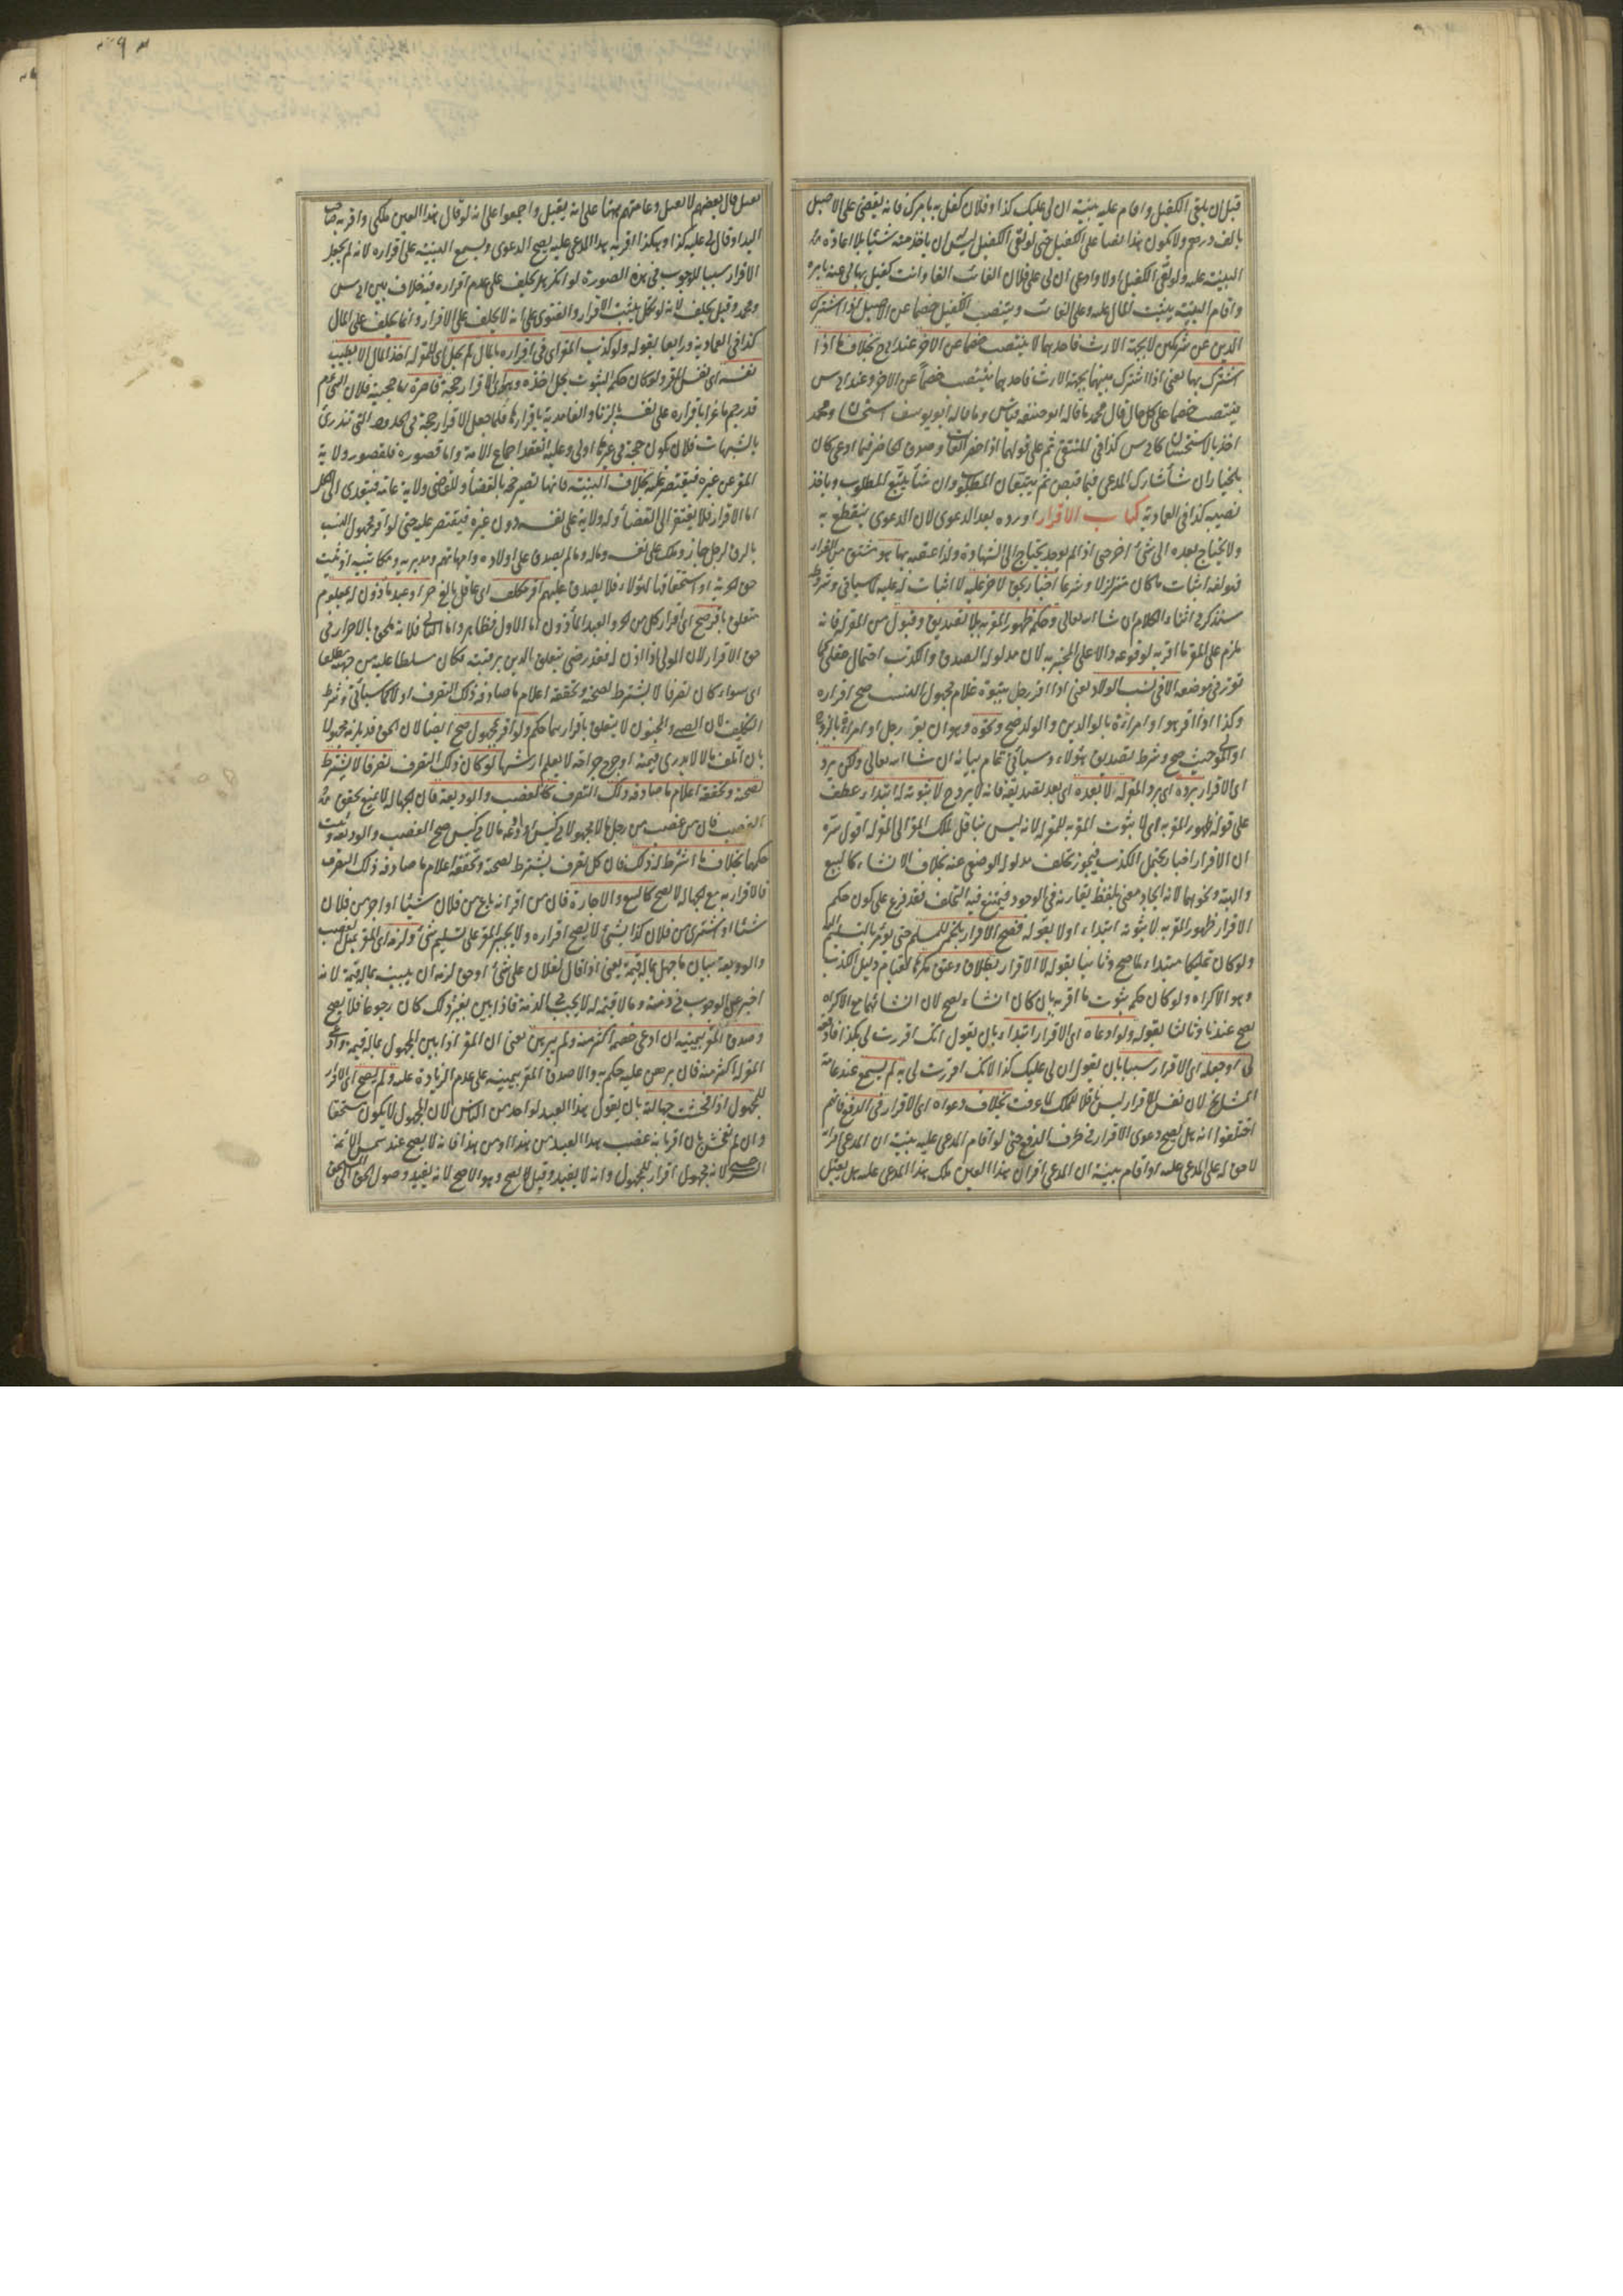 قبل ان يلقى الكفيل واقام عليه بينة ان لى عليك كذا وفلان كفل به بامرك فانه يقضى على الاصيل
بالف درهم ولا يكون هذا قضا على الكفيل حتى لو لقى الكفيل ليس ان ياخذ منه شيئا بلا اعادة
البينة عليه ولو لقى الكفيل اولا وادعى ان لى على فلان الغائب الفا وانت كفيل بها لى عنه بامره
واقام البينة يثبت المال عليه وعلى الغائب وينتصب الكفيل خصما عن الاصيل اذا اشترك
الدين عن شركين لا بجهة الارث فاحدهما لا ينتصب خصما عن الاخر عند ابى ح بخلاف ما اذا
اشترك بها يعنى اذا اشترك بينهما بجهة الارث فاحدهما ينتصب خصما عن الاخر وعند ابى س
ينتصب خصما على كل حال قال محمد ما قاله ابو حنيفه قياس وما قاله ابو يوسف استحسان ومحمد
اخذ بالاستحسان كابى س كذا فى المنتقى ثم على قولهما اذا حضر الغائب وصدق الحاضر فيما ادعى كان
بالخيار ان شأ شارك المدعى فيما قبض ثم يتبعان المطلوب وان شأ يتبع المطلوب وياخذ
نصيبه كذا فى العمادية كتاب الاقرار اورده بعد الدعوى لان الدعوى ينقطع به
ولا يحتاج بعده الى شئ اخر حتى اذا لم يوجد يحتاج الى الشهادة ولذا عقبه بها هو مشتق من القرار
فهو لغة اثبات ما كان متزلزلا وشرعا اخبار بحق لاخر عليه لا اثبات له عليه لما سياتى وشروطه
ستذكر فى اثناء الكلام ان شا الله تعالى وحكمه ظهور المقر به بلا تصديق وقبول من المقر له فانه
يلزم على المقر ما اقر به لوقوعه دالا على المخبر به لان مدلوله الصدق والكذب احتمال عقلى كما
تقرر فى موضعه الا فى نسب الولاد يعنى اذا اقر رجل ببنوة غلام مجهول النسب صح اقراره
وكذا اذا اقر هو او امراءة بالوالدين والولد صح ونحوه وهو ان يقر رجل او امراءة بالزوجية
او المولى حيث صح وشرط تصديق هؤلاء وسيأتى تمام بيانه ان شا الله تعالى ولكن يرد
اى الاقرار برده اى برد المقر له الا بعده اى بعد تصديقه فانه لا يرد ح لا ثبوته له ابتداء عطف
على قوله ظهور المقر به اى لا ثبوت المقر به للمقر له لانه ليس بناقل لملك المقر الى المقر له اقول سره
ان الاقرار اخبار يحتمل الكذب فيجوز تخلف مدلوله الوضعى عنه بخلاف الانشاء كالبيع
والهبة ونحوهما لانه ايجاد معنى بلفظ يقارنه فى الوجود فيمتنع فيه التخلف فقد فرع على كون حكم
الاقرار ظهور المقر به لا ثبوته ابتداء اولا بقوله فصح الاقرار بالخمر للمسلم حتى يؤمر بالتسليم اليه
ولو كان تمليكا مبتداء لما صح وثانيا بقوله لا الاقرار بطلاق وعتق مكرها لقيام دليل الكذب
وهو الاكراه ولو كان حكمه ثبوت ما اقر به بان كان انشاء يصح لان انشائهما مع الاكراه
يصح عندنا وثالثا بقوله ولو ادعاه اى الاقرار ابتداء بان يقول انك اقررت لى بكذا فادفعه
لى او جعله اى الاقرار سببا بان يقول ان لى عليك كذا لانك اقررت لى به لم يسمع عند عامة
المشايخ لان نفس الاقرار ليس ناقلا للملك لما عرفت بخلاف دعواه اى الاقرار فى الدفع فانهم
اختلفوا انه هل يصح دعوى الاقرار فى طرف الدفع حتى لو اقام المدعى عليه بينة ان المدعى اقر انه
لا حق له على المدعى عليه او اقام بينة ان المدعى اقر ان هذا العين ملك هذا المدعى عليه هل يقبل
يقبل قال بعضهم لا يقبل وعامتهم ههنا على انه يقبل واجمعوا على انه لو قال هذا العين ملكى واقر به صاحب
اليد او قال لى عليه كذا وهكذا اقر به هذا المدعى عليه يصح الدعوى ويسمع البينة على اقراره لانه لم يجعل
الاقرار سببا للوجوب فى هذه الصورة لو انكر هل يحلف على عدم اقراره فيه خلاف بين ابى س
ومحمد وقيل يحلف لانه لو نكل يثبت الاقرار والفتوى على انه لا يحلف على الاقرار وانما يحلف على المال
كذا فى العمادية ورابعا بقوله ولو كذب المقر اى فى اقراره بالمال لم يحل اى للمقر له اخذ المال الا بطيب
نفسه اى نفس المقر ولو كان حكمه الثبوت يحل اخذه وهو اى الاقرار حجة قاصرة اما حجيته فلان النبى عم
قد رجم ماعزا باقراره على نفسه بالزنا والغامدية باقرارها فلما جعل الاقرار حجة فى الحدود التى تندرئ
بالشبهات فلان يكون حجة فى غيرها اولى وعليه انعقد اجماع الامة واما قصوره فلقصور ولاية
المقر عن غيره فيقتصر عليه بخلاف البينة فانها تصير حجة بالقضأ وللقاضى ولاية عامة فيتعدى الى الكل
اما الاقرار فلا يفتقر الى القضأ وله ولاية على نفسه دون غيره فيقتصر عليه حتى لو اقر مجهول النسب
بالرق لرجل جاز وملك على نفسه وماله وما لم يصدق على اولاده وامهاتهم ومدبريه ومكاتبيه اذ ثبت
حق الحرية او استحقاقها لهؤلاء فلا يصدق عليهم اقر مكلف اى عاقل بالغ حر او عبد مأذون له بمعلوم
متعلق باقر صح اى اقرار كل من الحر والعبد المأذون اما الاول فظاهر واما الثانى فلانه ملحق بالاحرار فى
حق الاقرار لان المولى اذا اذن له فقد رضى بتعلق الدين برقبته فكان مسلطا عليه من جهته مطلقا
اى سواء كان تصرفا لا يشترط لصحته وتحققه اعلام ما صادفه ذلك التصرف او لا كما سيأتى وشرط
التكليف لان الصبى والمجنون لا يتعلق باقرارهما حكم ولو اقر بمجهول صح ايضا لان الحق قد يلزمه مجهولا
بان اتلف مالا لا يدرى قيمته او جرح جراحة لا يعلم ارشها لو كان ذلك التصرف تصرفا لا يشترط
لصحته وتحققه اعلام ما صادفه ذلك التصرف كالغصب والوديعة فان الجهالة لا تمنع تحقق
الغصب فان من غصب من رجل مالا مجهولا فى كيس او اودعه مالا فى كيس صح الغصب والوديعة وثبت
حكمهما بخلاف ما اشترط له ذلك فان كل تصرف يشترط لصحته وتحققه اعلام ما صادفه ذلك التصرف
فالاقرار به مع الجهالة لا يصح كالبيع والاجارة فان من اقر انه باع من فلان شيئا او اجر من فلان
شيئا او اشترى من فلان كذا بشئ لا يصح اقراره ولا يجبر المقر على تسليم شئ ولزمه اى المقر بمثل الغصب
والوديعة بيان ما جهل بماله قيمة يعنى اذا قال لفلان على شئ او حق لزمه ان يبين بماله قيمة لانه
اخبر عن الوجوب فى ذمته وما لا قيمة له لا يجب فى الذمة فاذا بين بغير ذلك كان رجوعا فلا يصح
وصدق المقر بيمينه ان ادعى خصمه اكثر منه ولم يبرهن يعنى ان المقر اذا بين المجهول بماله قيمة وادعى
المقر له اكثر منه فان برهن عليه حكم به والا صدق المقر بيمينه على عدم الزيادة عليه ولم يصح اى الاقرار
للمجهول اذا فحشت جهالته بان يقول هذا العبد لواحد من الناس لان المجهول لا يكون مستحقا
وان لم تفحش بان اقر بانه غصب هذا العبد من هذا او من هذا فانه لا يصح عند شمس الائمة
السرخسى لانه مجهول اقرار للمجهول وانه لا يفيد وقيل يصح وهو الاصح لانه يفيد وصول الحق الى المستحق